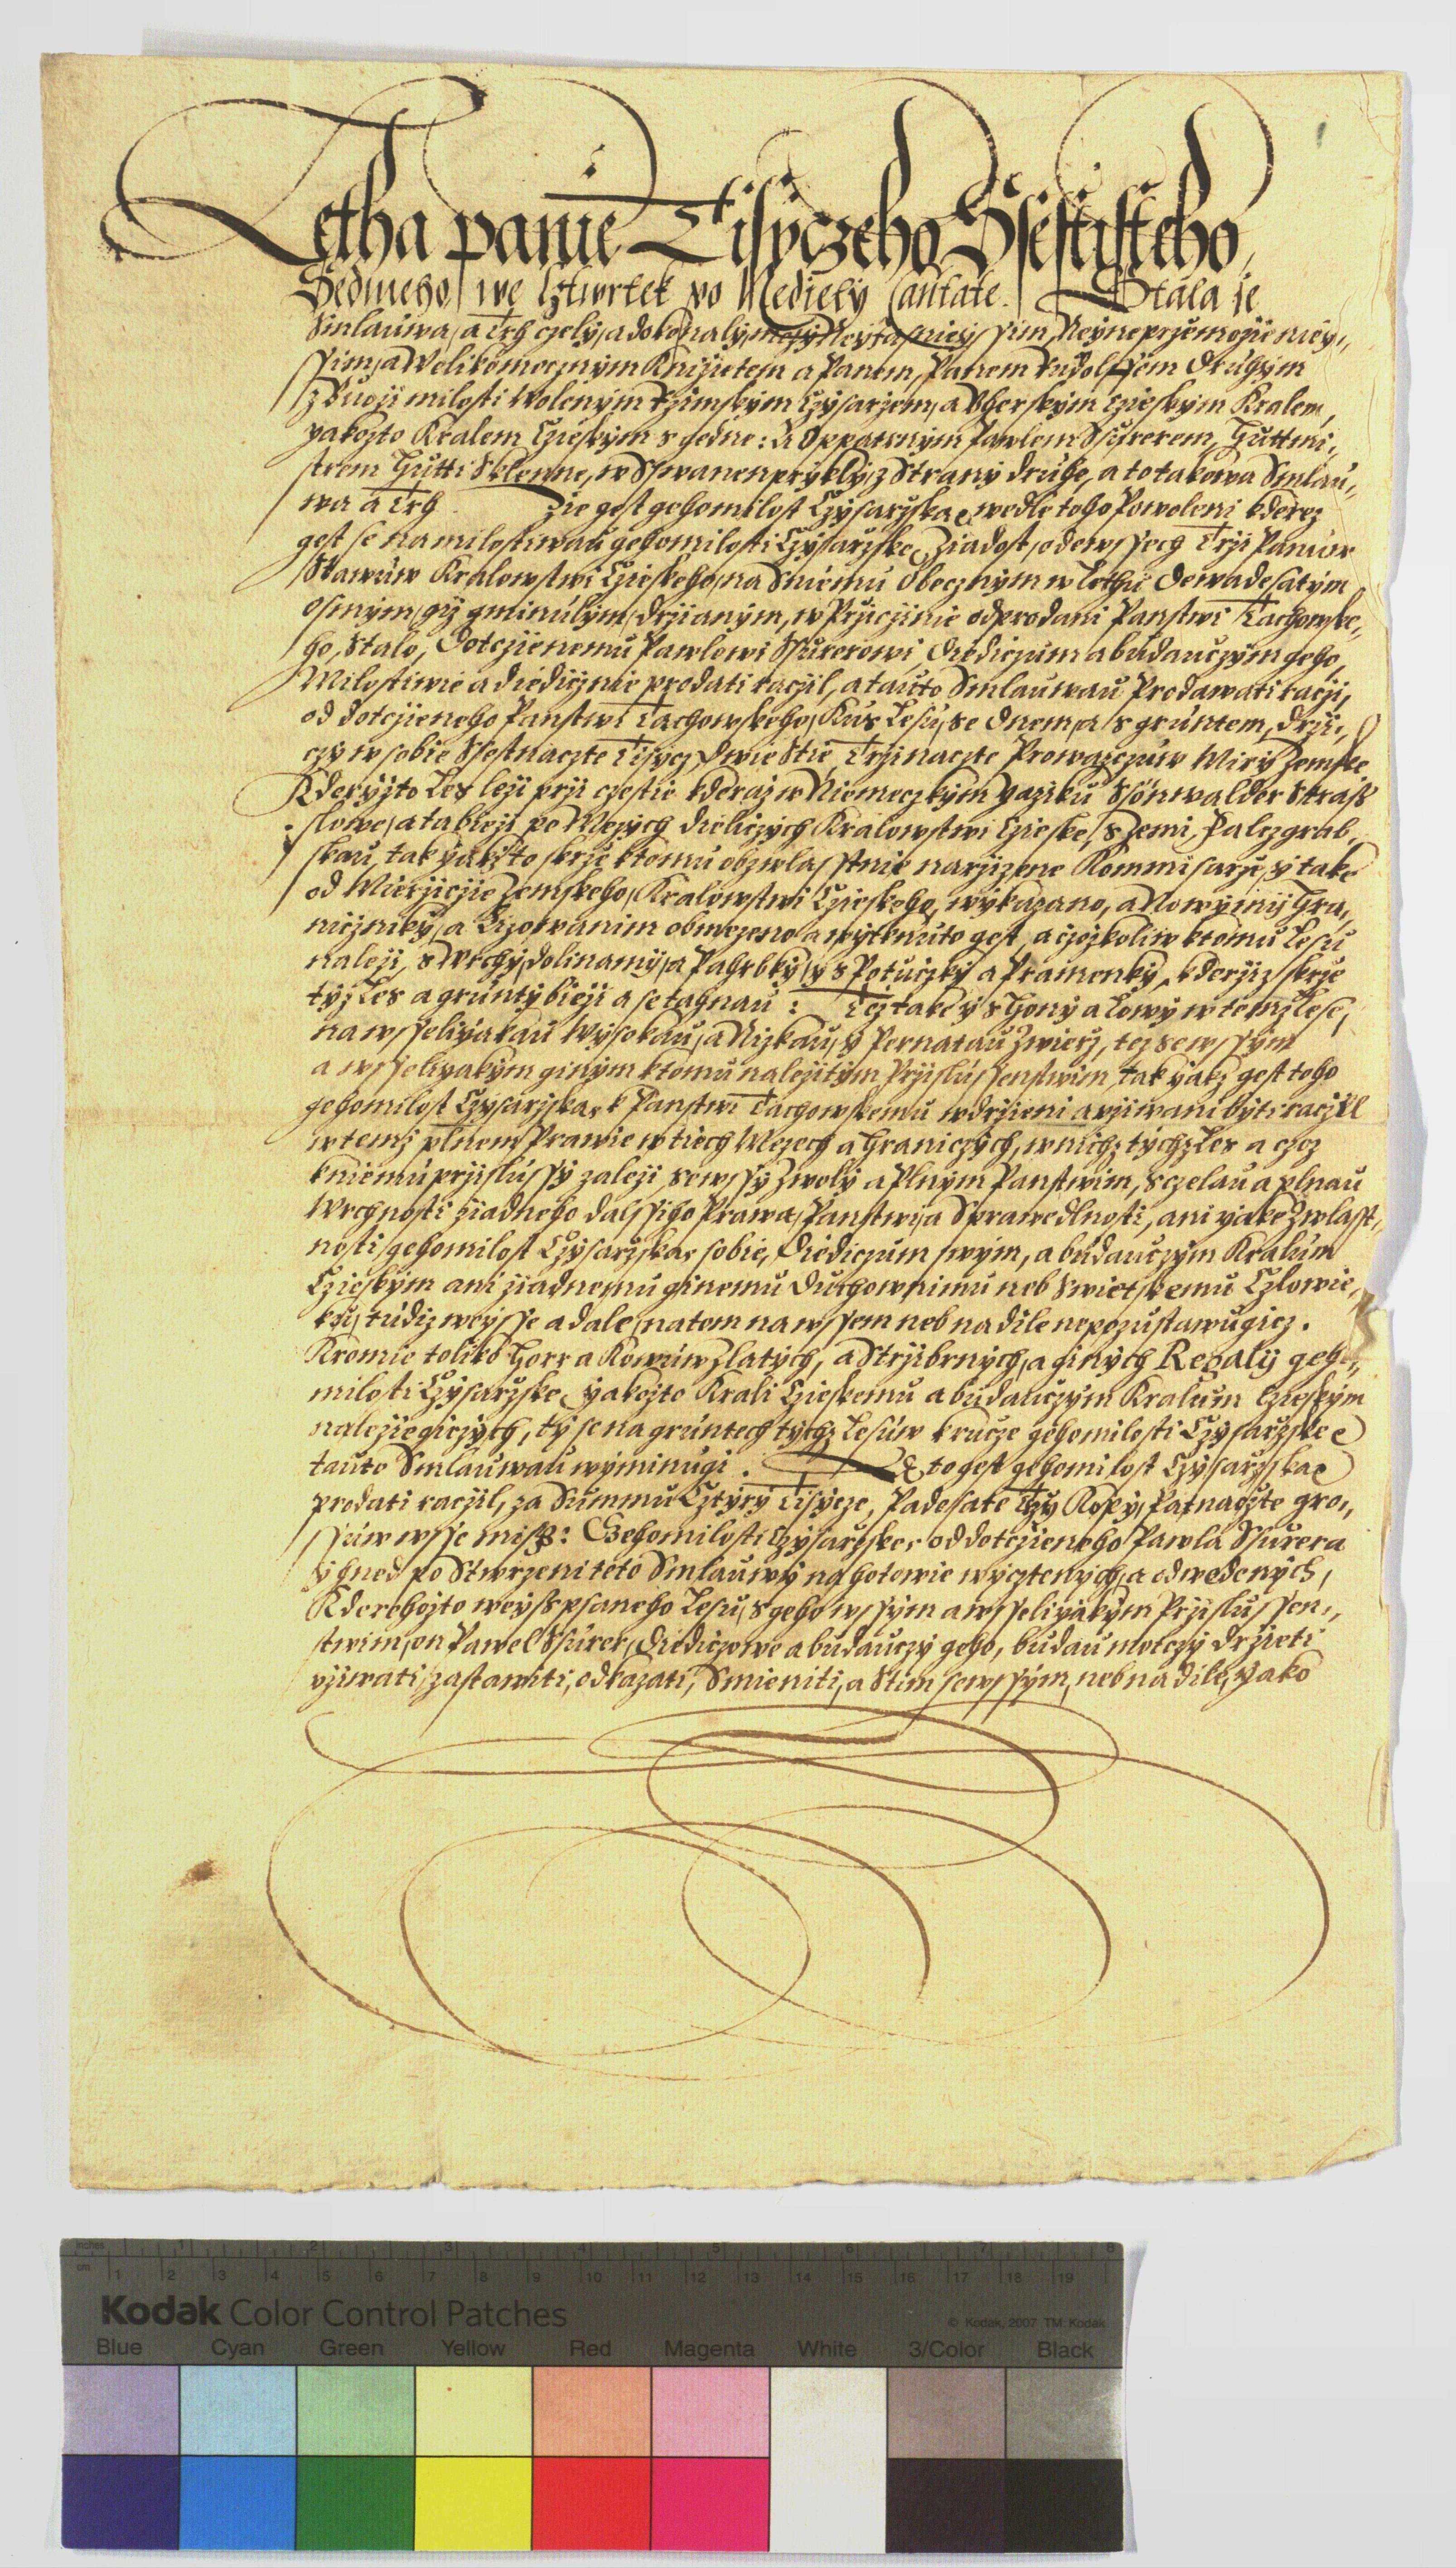 Letha panie Tisyczeho Ssestisteho,
Sedmeho, we Cztwrtek po Nediely Cantate. Stala se
Smlauwa, a Trh czely, a dokonaly, mezy Neyjasniegssim, Neyneprzemozieniey,,
ssim, a Welikomocznym Knizietem a Panem, Panem Rudolffem Druhym
z Buozi milosti Wolenym Rzimskym Czysarzem, a Vherskym Czieskym Kralem,
yakozto Kralem Czieskym s gedne: A Oppatrnym Pawlem Ssurerem, Huttmi,,
strem Hutti Sklenne, w Sswanenpryklu, z Strany druhe, a to takowa Smlau,,
wa a Trh. Zie gest gehomilost Czysarzska, wedle toho Powoleni kderez
gest se na milostiwau gehomilosti Czysarzske Ziadost, odewssech Trzi Panuw
Stawuw Kralowstwi Czieskeho, na Sniemu Obecznym w Lethu Dewadesatym
osmym, giz gminulym, drzianym, w Prziczinie odprodani Panstwi Tachowske,,
ho, Stalo, Dotczienemu Pawlowi Ssurerowi, Diediczum a budauczym geho,
Milostiwie a diediczne prodati raczil, a tauto Smlauwau Prodawati raczi,
od dotczieneho Panstwi Tachowskeho, Kus Lesu, se Dnem, a s gruntem, drzi,,
czy w sobie Ssestnaczte Tisycz, Dwie Stie, Trzinaczte Prowazczuw Miry Zemske
Kderyzto Les lezi przi czestie kderaz w Niemeczkym Yaziku Ssonwalder Straß
slowe, a ta biezi po Mezych dieliczych Kralowstwi Czieske, s Zemi Falczgrab,,
skau, tak yakz to skrze k tomu obzwlasstnie narzizene Kommisarze, y take
od Mierzicze Zemskeho, Kralowstwi Czieskeho, wykazano, a Nowymi Hra,,
niczniky, a Lizowanim obmezeno a wytknuto gest, a czozkoliw k tomu Lesu
nalezi, s Wrchy, dolinamij, a Pahrbky, y s Potuczky a Pramenky, kderziz skrze
tyz Les a grunty biezi a se tahnau: Tez take y s Hony a Lowy w temz Lese,
na wsseliyakau Wysokau, a Nizkau, y Pernatau Zwierz, tez se wssym
a wsseliyakym ginym k tomu nalezitym Przislussenstwim, tak yakz gest toho
gehomilost Czysarzska, k Panstwi Tachowskemu w drzieni a vziwani byti raczil
w temz plnem Prawie w tiech Mezech a Hraniczych, w nichz tychz Les a czoz
k niemu przislussy zalezi, se wssy Zwoly a Plnym Panstwim, s czelau a plnau
Wrchnosti ziadneho dalssiho Prawa, Panstwi, a Sprawedlnosti, ani yake Zwlasst,,
nosti, gehomilost Czysarzska, sobie, Diediczum swym, a budauczym Kralum
Czieskym ani ziadnemu ginemu Duchownimu neb Swietskemu Czlowie,,
ku, tudiz weysse a dale, na tom na wssem neb na dile nepozustawugicz.
Kromie toliko Horr a Kowuw Zlatych, a Strzibrnych, a ginych Regalij geho,,
milosti Czysarzske yakozto Krali Czieskemu a budauczym Kraluum Czieskym
nalezegiczych, ty se na gruntech tychz Lesuw k rucze gehomilosti Czysarzske
tauto Smlauwau wyminugi. A to gest gehomilost Czysarzska
prodati raczil, za Summu Cztyry Tisycze, Padesate Trzy Kopy, Patnaczte gro,,
ssuw wsse miss: Gehomilosti Czysarzske, od dotczieneho Pawla Ssurera
y hned po Stwrzeni teto Smlauwy na hotowie wycztenych, a odwedenych,
Kderehozto weyss psaneho Lesu, s geho wssym a wsseliyakym Przislussen,,
stwim, on Pawel Ssurer, Diediczowe a budauczy geho, budau moczy drzieti
vziwati, zastawiti, odkazati, Smieniti, a Stim sewssym, neb na dile, yako
Kodak Color Control Patches
© Kodak, 2007 TM: Kodak
Blue Cyan Green Yellow Red Magenta White 3/Color Black